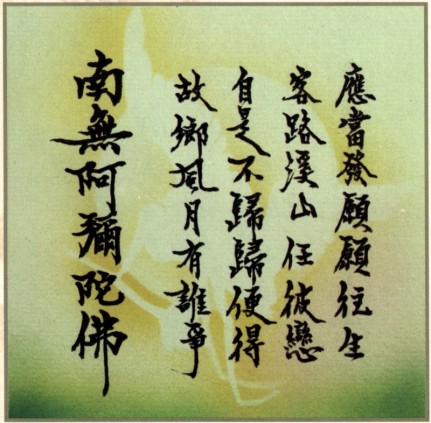 應當發願願往生
客路溪山任彼戀
自是不歸歸便得
故鄉風月有誰爭
南無阿彌陀佛